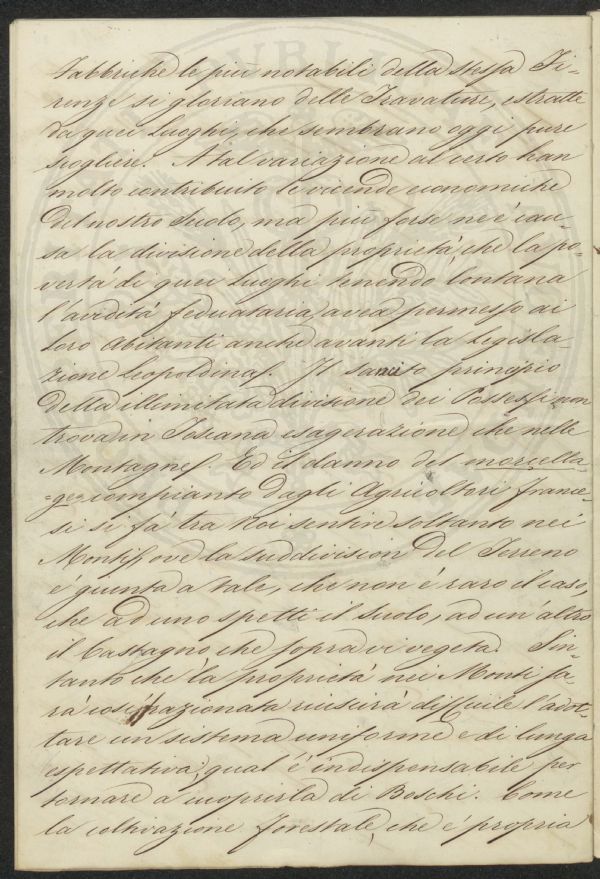 Fabbriche le più notabili della stessa Fi-
renze si gloriano delle Travature, estratte
da quei Luoghi, che sembrano oggi pure
scogliere. A tal variazione al certo han
molto contribuito le vicende economiche
del nostro Suolo, ma più forse ne è cau-
sa la divisione della proprietà, che la po-
vertà di quei Luoghi tenendo lontana
l'avidità feduataria, avea permesso ai
loro Abitanti anche avanti la Legisla-
zione Leopoldina. Il savito principio
della illimitata divisione dei Possessi non
trova in Toscana esagerazione, che nelle
Montagne. Ed il danno del morcella-
=ge compianto dagli Agricoltori France-
si si fà tra Noi sentire soltanto nei
Monti, ove la suddivision del Terreno
è giunta a tale, che non è raro il caso,
che ad uno spetti il Suolo, ad un'altro
il Castagno che sopra vi vegeta. Sin-
tanto che la proprietà nei Monti sa-
rà così frazionata riuscirà difficile l'adot-
tare un sistema uniforme e di lunga
espettativa, qual è indispensabile per
tornare a ricoprirla di Boschi. Come
la coltivazione forestale, che è propria